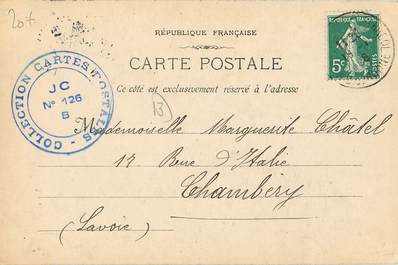 20f
RÉPUBLIQUE FRANÇAISE
CARTE POSTALE
Ce côté est exclusivement réservé à l'adresse
REPUBLIQUE FRANÇAISE
5c
COLLECTION CARTES POSTALES
JC
N° 126
B
13
Mademoiselle Marguerite Châtel
17 Rue d'Italie
Chambéry
(Savoie)